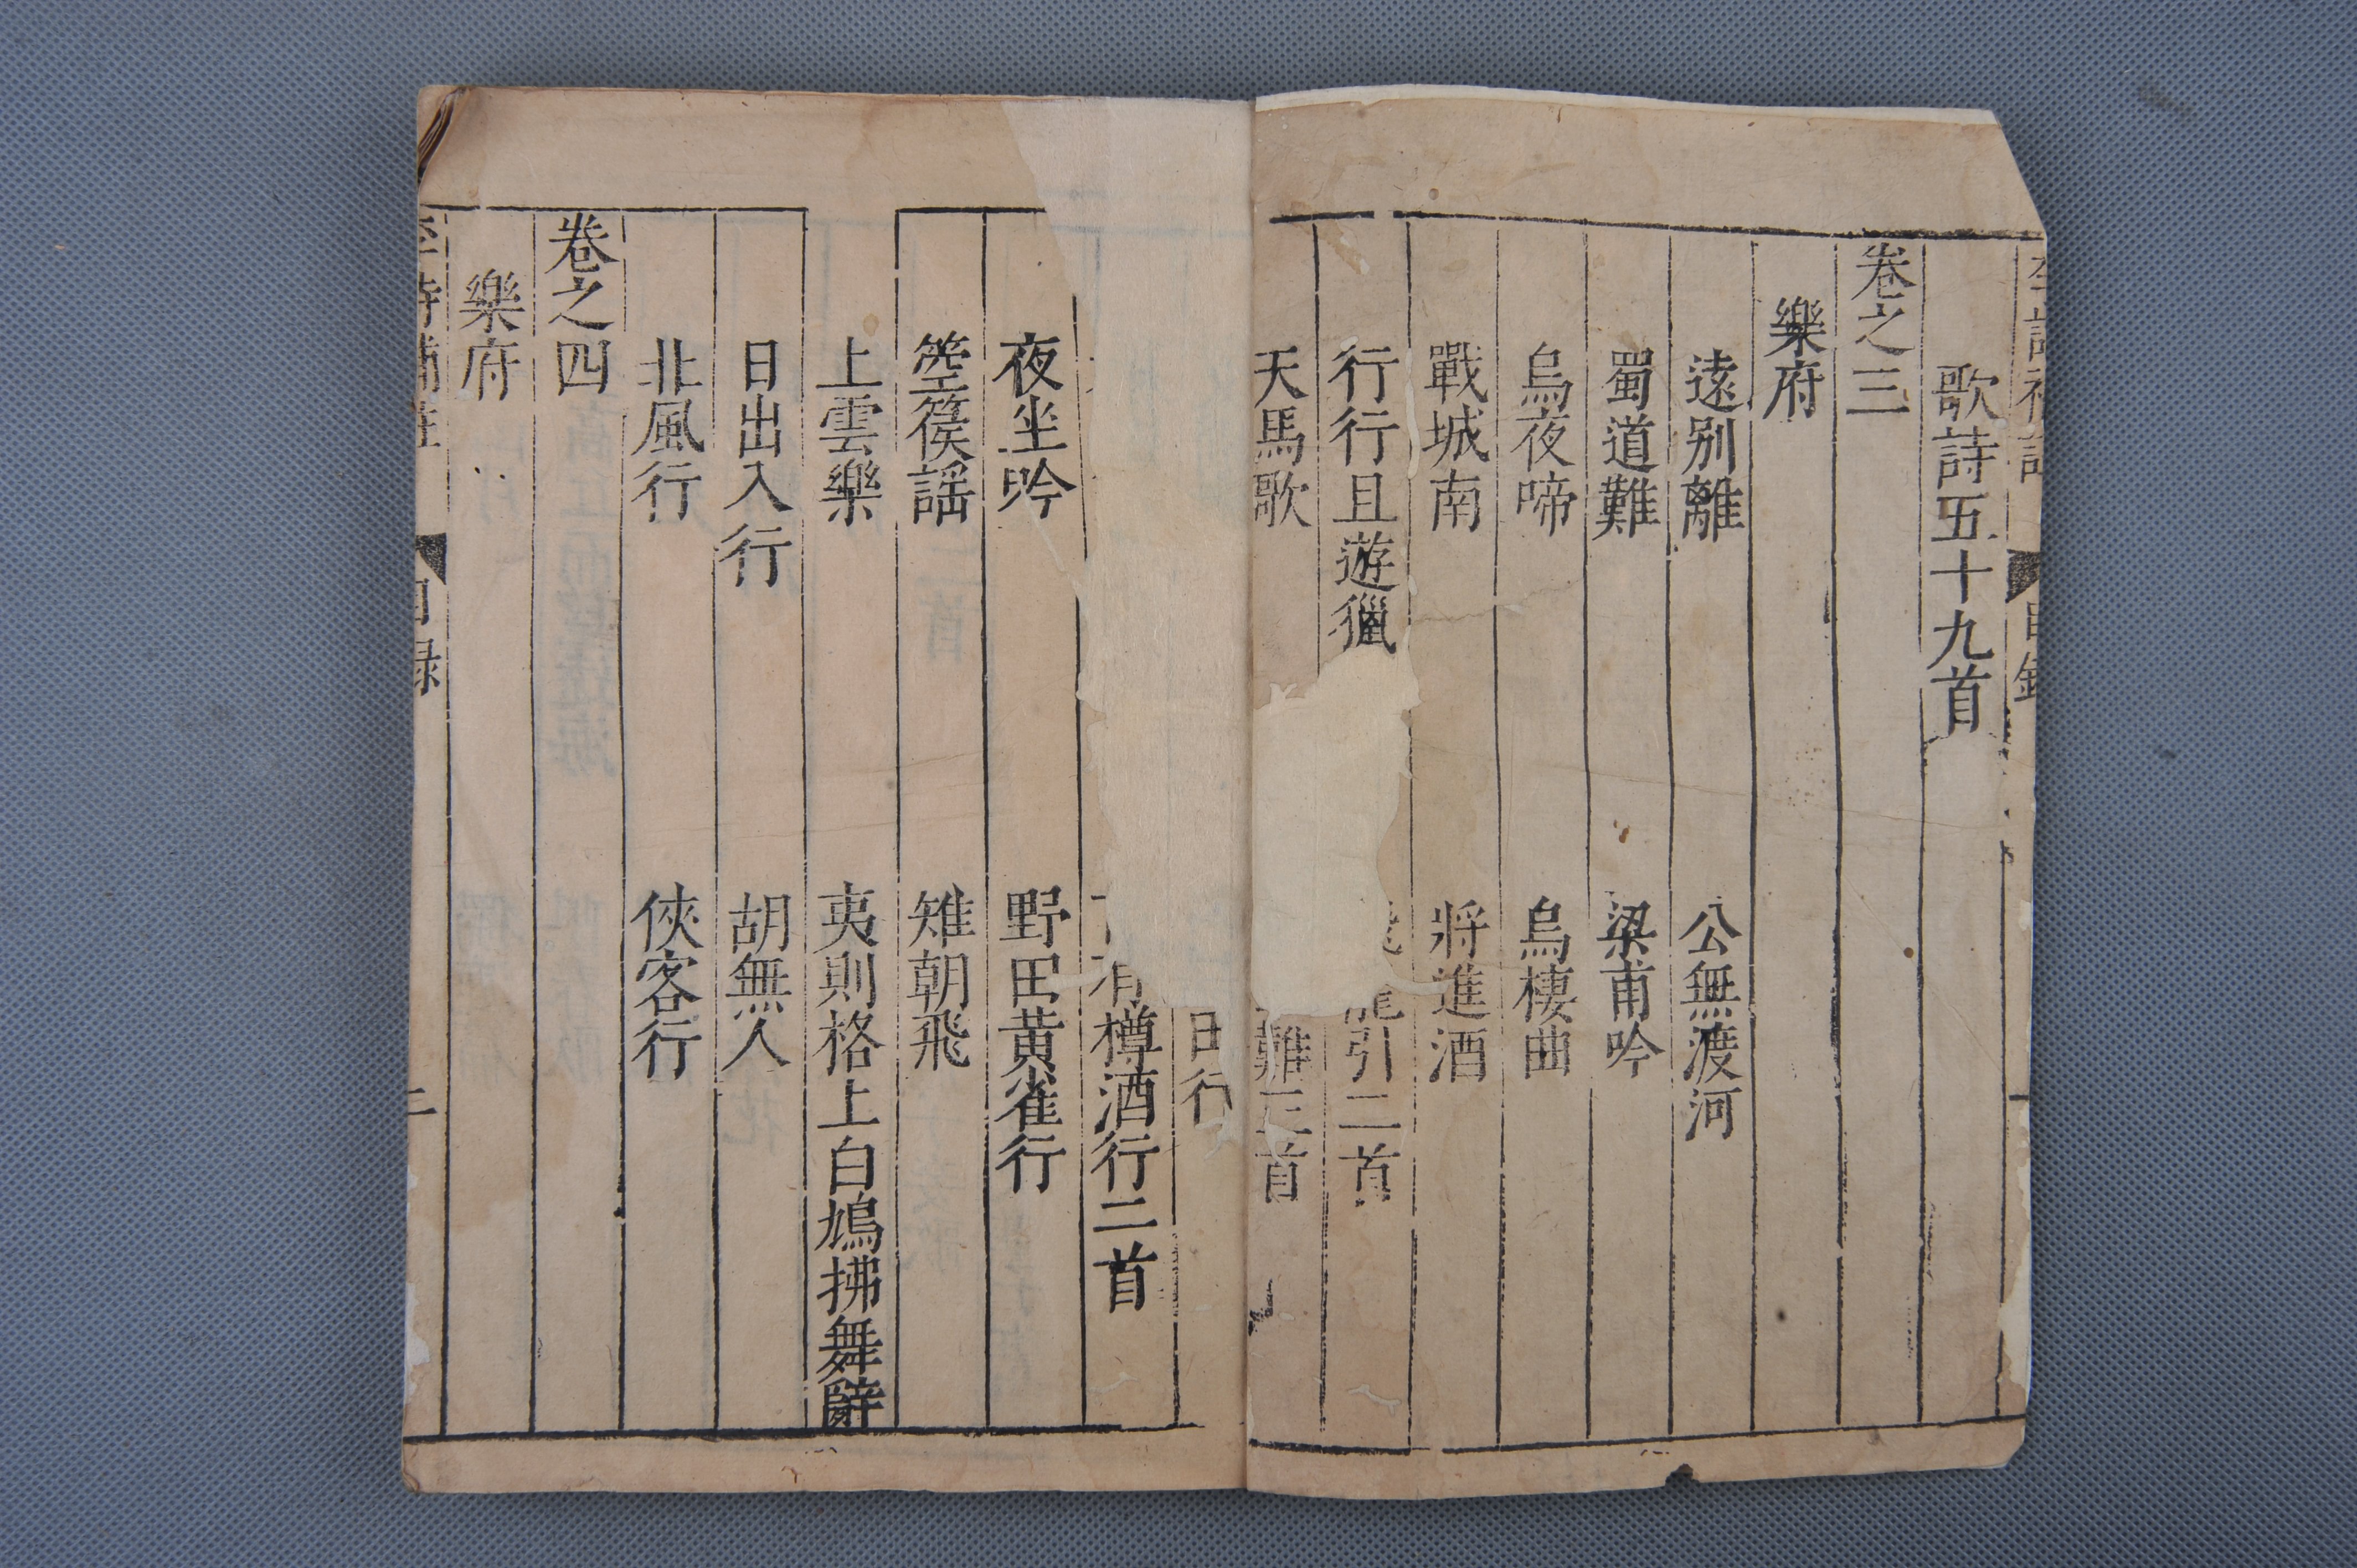 歌詩五十九首
卷之三
樂府
遠别離 公無渡河
蜀道難 梁甫吟
烏夜啼 烏棲曲
戰城南 將進酒
行行且遊獵 龍引二首
天馬歌 難三首
行
有樽酒行二首
夜坐吟 野田黄雀行
箜篌謡 雉朝飛
上雲樂 夷則格上白鳩拂舞辭
日出入行 胡無人
北風行 俠客行
卷之四
樂府
目録
二